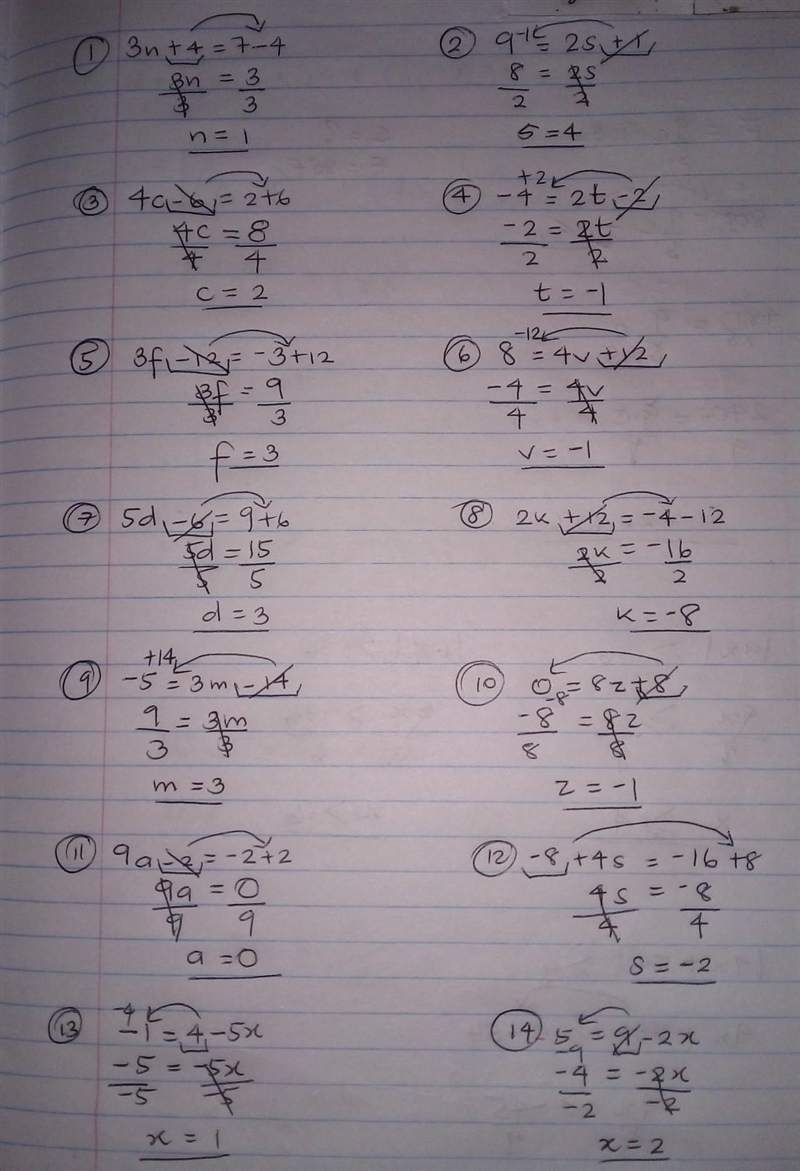 ① 3n + 4 = 7 - 4
3n/3 = 3/3
n = 1
② 9 -1 = 2s + 1
8/2 = 2s/2
s = 4
③ 4c - 6 = 2 + 6
4c/4 = 8/4
c = 2
④ -4 +2 = 2t - 2
-2/2 = 2t/2
t = -1
⑤ 3f - 12 = -3 + 12
3f/3 = 9/3
f = 3
⑥ 8 -12 = 4v + 12
-4/4 = 4v/4
v = -1
⑦ 5d - 6 = 9 + 6
5d/5 = 15/5
d = 3
⑧ 2k + 12 = -4 - 12
2k/2 = -16/2
k = -8
⑨ -5 +14 = 3m - 14
9/3 = 3m/3
m = 3
⑩ 0 -8 = 8z + 8
-8/8 = 8z/8
z = -1
⑪ 9a - 2 = -2 + 2
9a/9 = 0/9
a = 0
⑫ -8 + 4s = -16 + 8
4s/4 = -8/4
s = -2
⑬ -1 -4 = 4 - 5x
-5/-5 = -5x/-5
x = 1
⑭ 5 -9 = 9 - 2x
-4/-2 = -2x/-2
x = 2